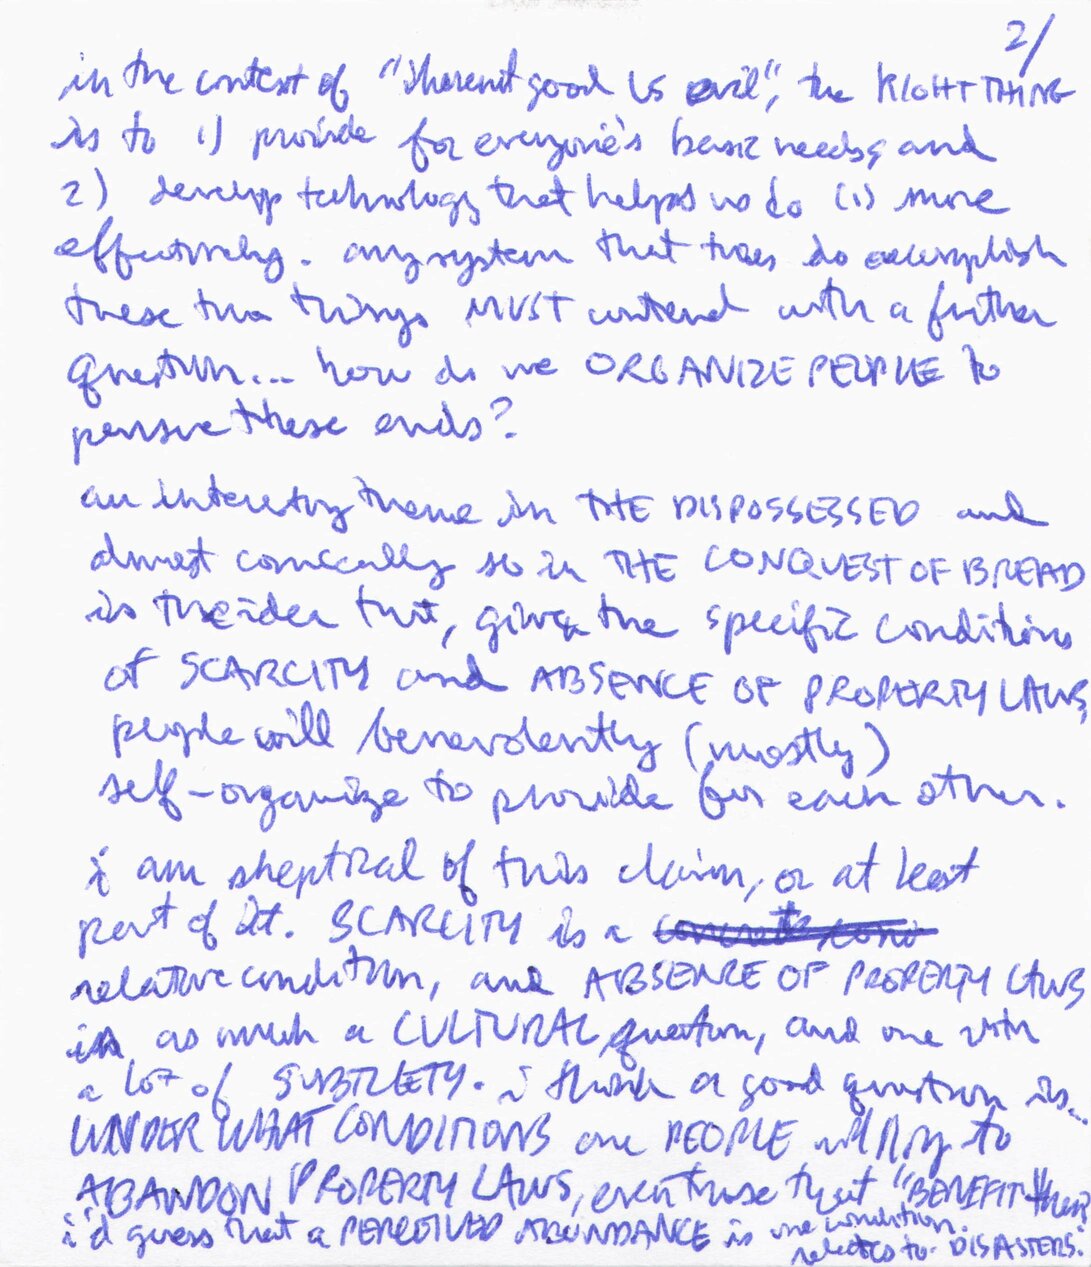 2/
in the context of "inherent good vs evil", the RIGHT THING
is to 1) provide for everyone's basic needs, and
2) develop technology that helps us do (1) more
effectively. any system that tries to accomplish
these two things MUST contend with a further
question... how do we ORGANIZE PEOPLE to
pursue these ends?
an interesting theme in THE DISPOSSESSED and
almost comically so in THE CONQUEST OF BREAD
is the idea that, given the specific conditions
of SCARCITY and ABSENCE OF PROPERTY LAWS,
people will benevolently (mostly)
self-organize to provide for each other.
i am skeptical of this claim, or at least
part of it. SCARCITY is a
relative condition, and ABSENCE OF PROPERTY LAWS
is as much a CULTURAL question, and one with
a lot of SUBTLETY. i think a good question is...
UNDER WHAT CONDITIONS are PEOPLE willing to
ABANDON PROPERTY LAWS, even those that "BENEFIT them?
i'd guess that a PERCEIVED ABUNDANCE is one condition.
related to DISASTERS.